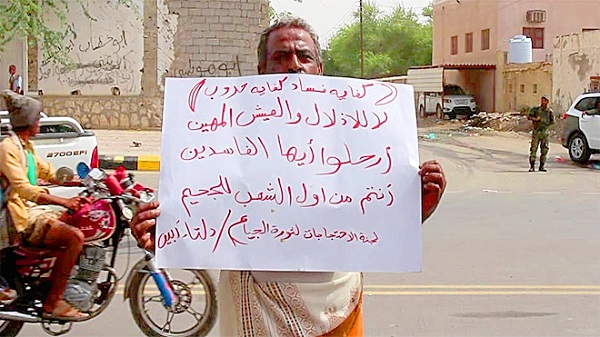 ( كفاية فساد كفاية حروب )
لا للاذلال والعيش المهين
أرحلوا أيها الفاسدين
أنتم من اول الشعب للجحيم
لجنة الاحتجاجات لثورة الجياع / دلتا أبين
2700 EFI